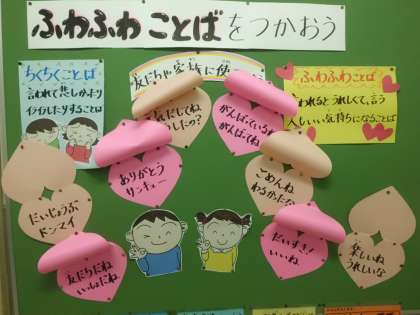 ふわふわことばをつかおう
ちくちくことば
言われて悲しかったり
イライラしたりすることば
友だちや家族に使
ふわふわことば
言われるとうれしくて、言う
人もいい気持ちになることば
したの？
がんばっているね
がんばってね
ありがとう
サンキュー
ごめんね
だいじょうぶ
ドンマイ
友だちだね
いっしょだね
だいすき！
いいね
楽しいね
うれしいな